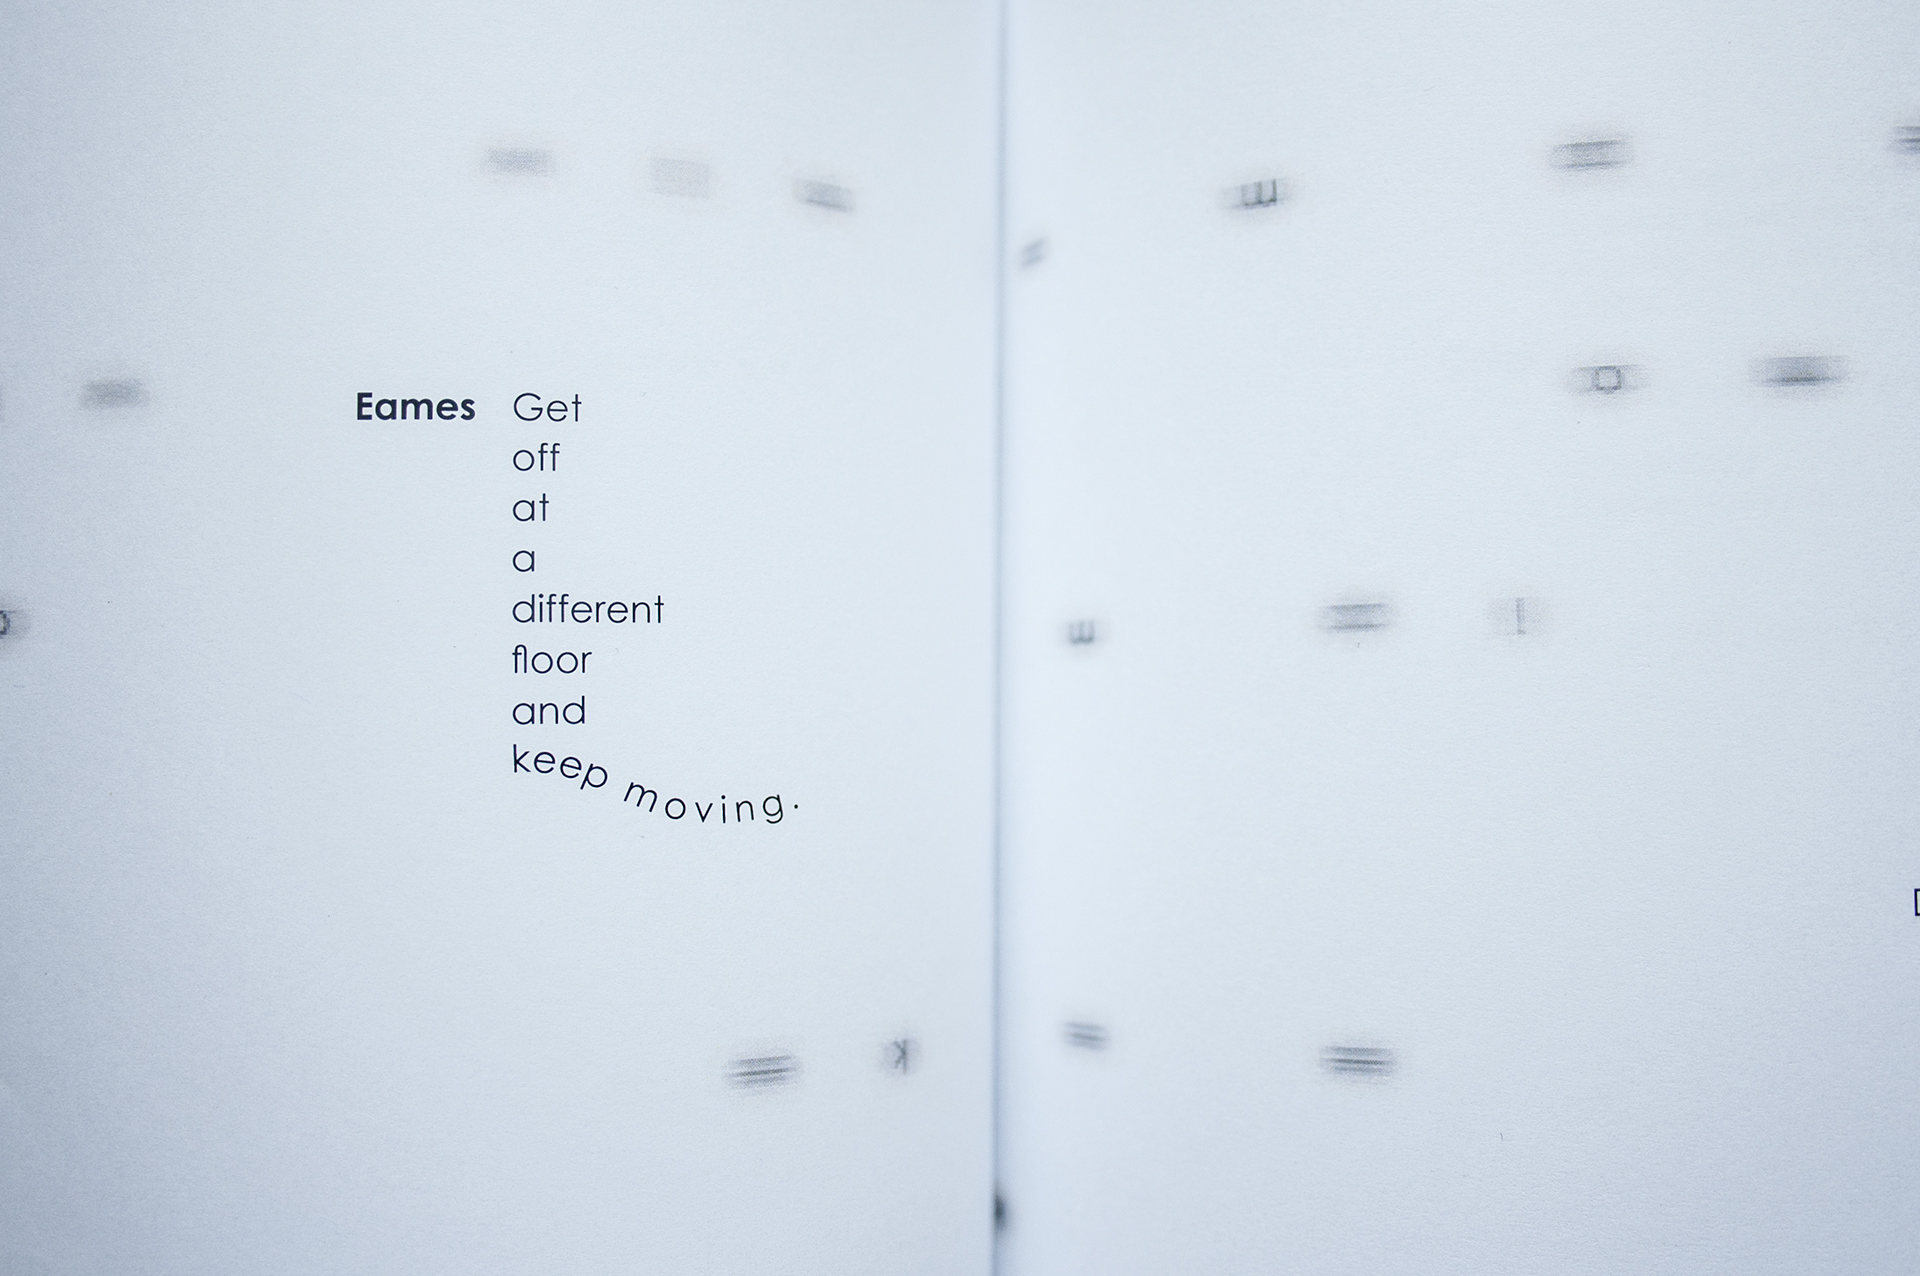 Eames Get
off
at
a
different
floor
and
keep moving.